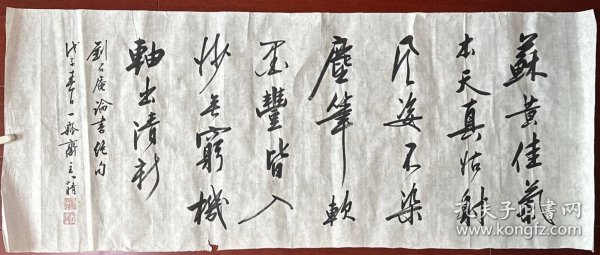 蘇黃佳氣
本天真姑射
風姿不染
塵筆軟
墨豐皆入
妙無窮機
軸出清新
劉石庵論書絕句
戊子春日一瓢齋主
孔夫子舊書網
www.kongfz.com